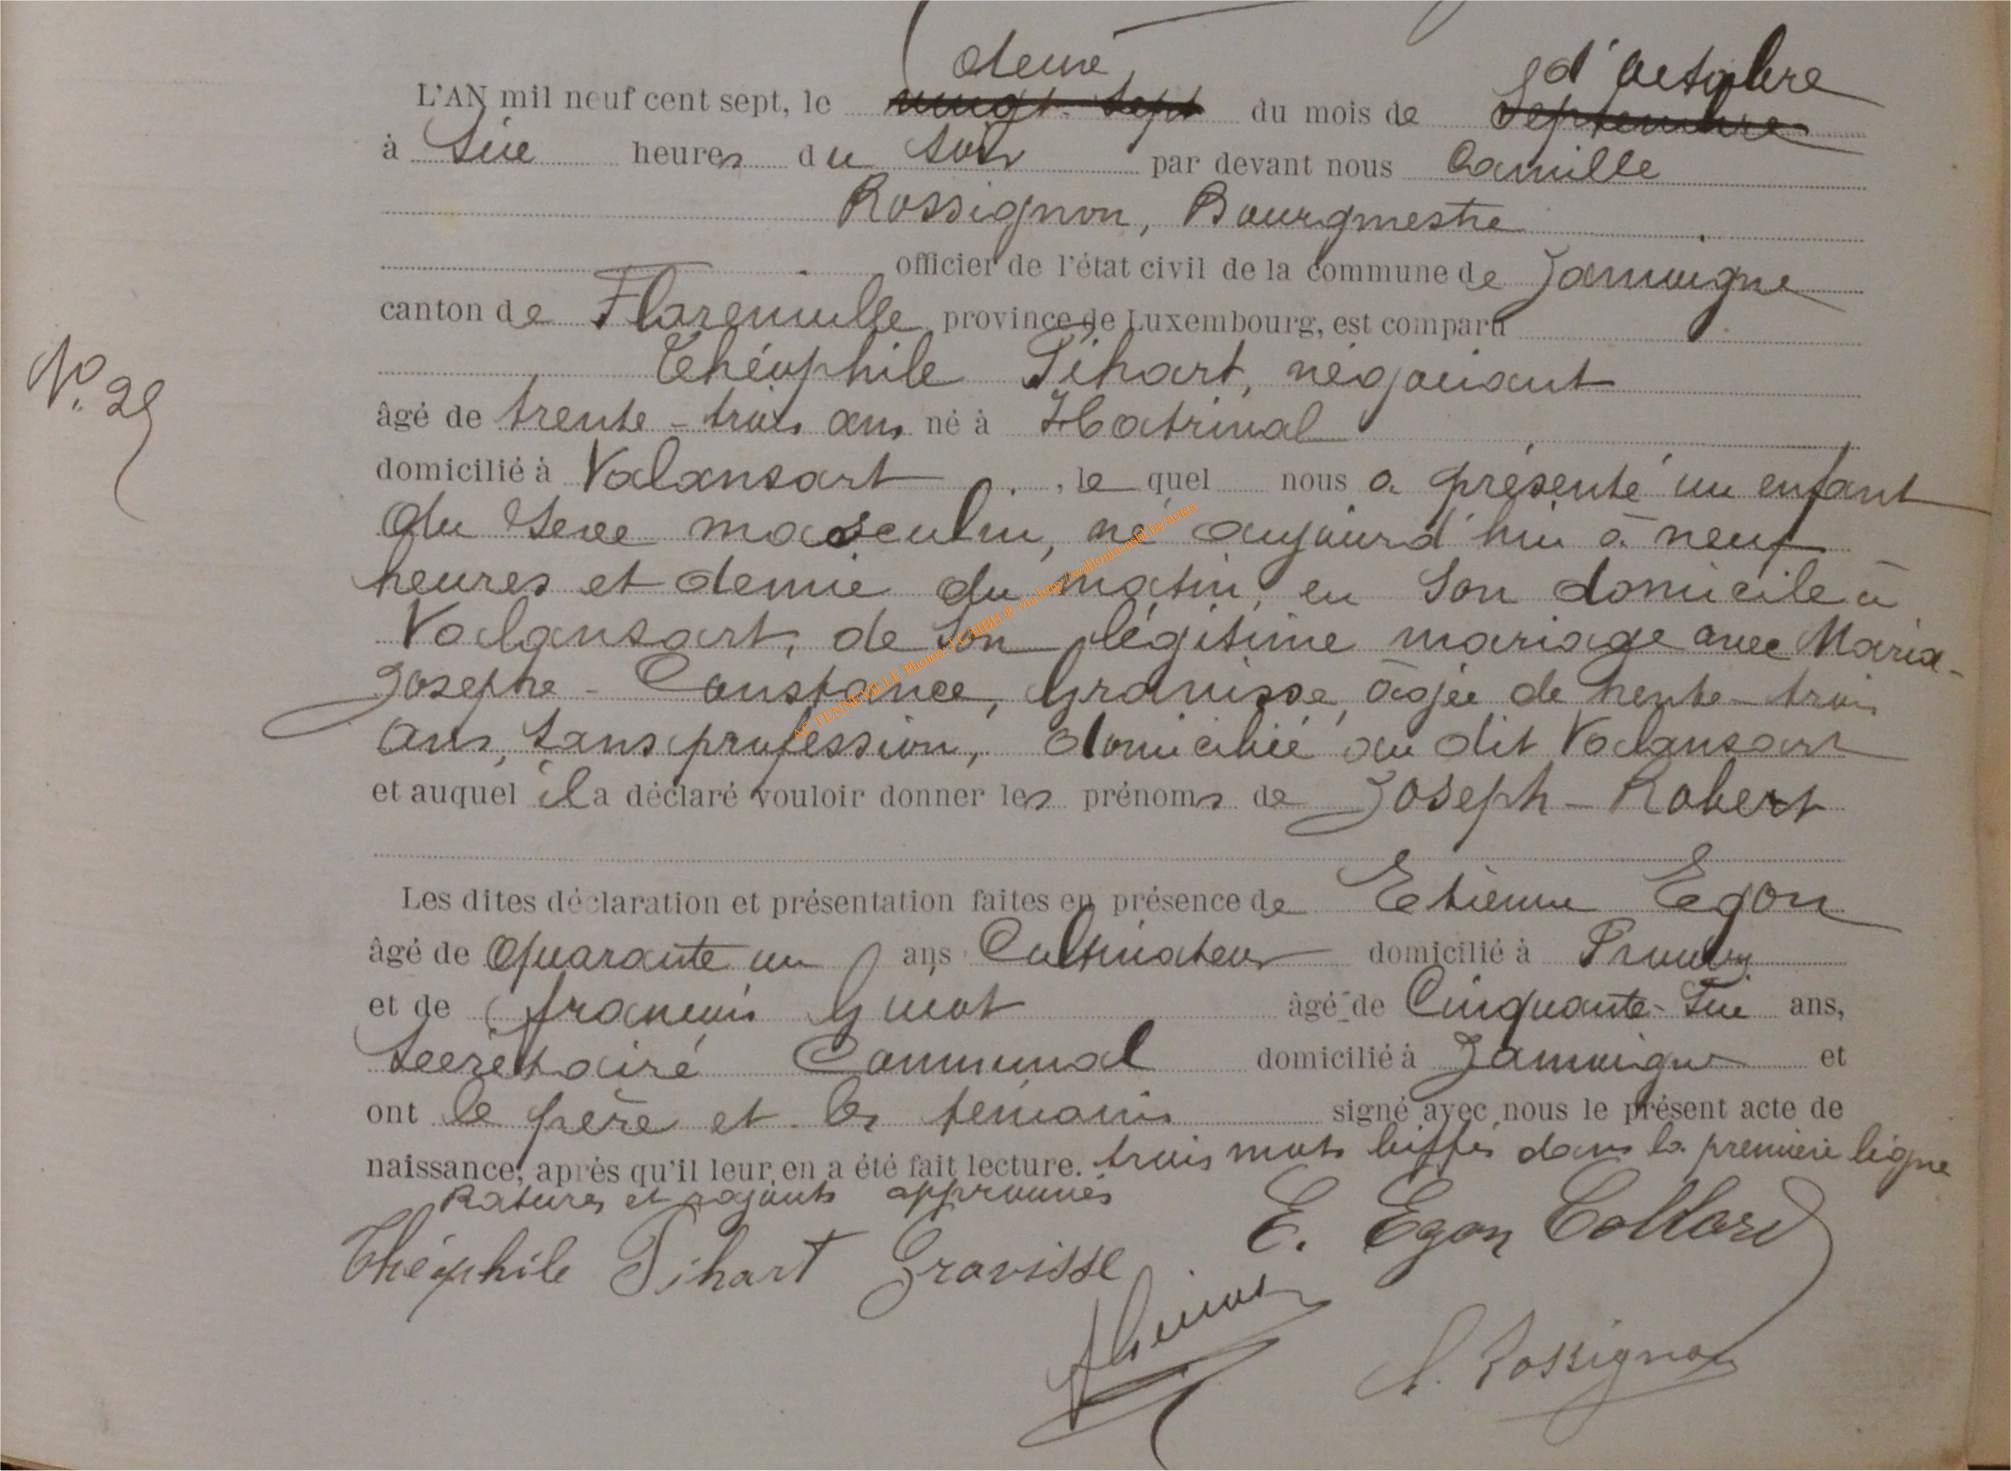 deux d'octobre
L'AN mil neuf cent sept, le vingt-sept du mois de Septembre
à six heures du soir par devant nous Camille
Rossignon, Bourgmestre
officier de l'état civil de la commune de Jamoigne
canton de Florenville province de Luxembourg, est comparu
Théophile Pihart, négociant
N° 29
âgé de trente-trois ans né à Hatrival
domicilié à Valansart, le quel nous a présenté un enfant
du sexe masculin, né aujourd'hui à neuf
heures et demie du matin, en son domicile à
Valansart, de son légitime mariage avec Maria-
Josephe-Constance, Gravisse, âgée de trente-trois
ans, sans profession, domiciliée au dit Valansart
et auquel il a déclaré vouloir donner les prénoms de Joseph-Robert
Les dites déclaration et présentation faites en présence de Etienne Egon
âgé de quarante un ans Cultivateur domicilié à
et de François Guiot âgé de Cinquante-six ans,
Secrétaire Communal domicilié à Jamoigne et
ont le père et les témoins signé avec nous le présent acte de
naissance, après qu'il leur en a été fait lecture. trois mots biffés dans la première ligne
Ratures et rajouts approuvés
Théophile Pihart Gravisse E. Egon Collard
C. Rossignon
AC TENNEVILLE Photos: LCMBH @